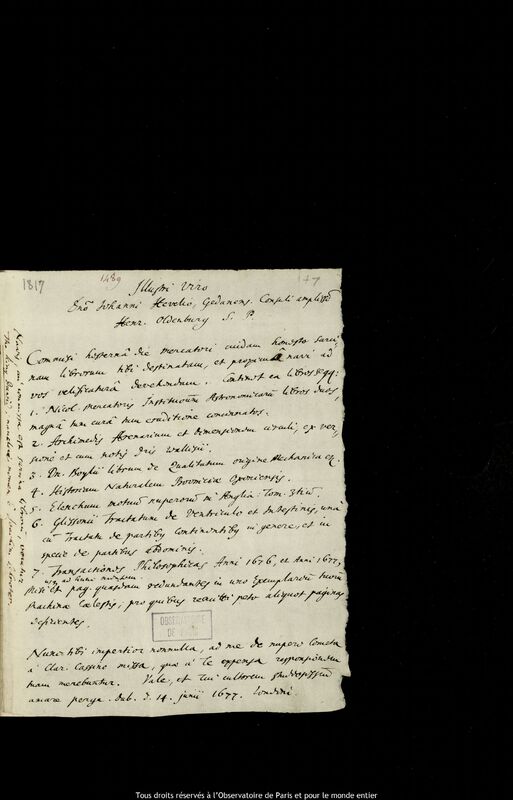 1817
1489
177
Illustri Viro
Dno Johanni Hevelio, Gedanens. Consuli amplissº
Henr. Oldenburg S. P.
Commisi hesterna die mercatori cuidam honesto sarci
nam librorum tibi destinatam, et proxima navi ad
vos velificatura devehendam. Continet ea libros sqq:
1. Nicol. Mercatoris Institutionum Astronomicarum libros duos,
magna tum cura tum eruditione concinnatos.
2. Archimedis Arenarium et dimensionem circuli, ex ver-
sione et cum notis Dris Wallisii.
3. Dn. Boylii librum de Qualitatum origine Mechanica etc.
4. Historiam Naturalem Provinciæ Oxoniensis.
5. Elenchum motuum nuperorum in Anglia. Tom. 3tium.
6. Glissonii Tractatum de Ventriculo et Intestinis, una
cum Tractatu de partibus continentibus in genere, et in
specie de partibus Abdominis.
7. Transactiones Philosophicas Anni 1676, et Anni 1677,
usq ad hunc mensem.
Misi et pag. quasdam redundantes in uno Exemplarium tuorum
Machinæ Cœlestis; pro quibus remitti peto aliquot paginas
deficientes.
OBSERVATOIRE
DE PARIS
Nunc tibi impertior nonnulla, ad me de nupero Cometa
à Clar. Cassino missa, quæ à te expensa responsionem
tuam merebuntur. Vale, et tui cultorem studiosissimum
amare perge. dab. d. 14. junii 1677. Londini.
Navis cui commissa est sarcina librorum, vocatur
Tous droits réservés à l'Observatoire de Paris et pour le monde entier